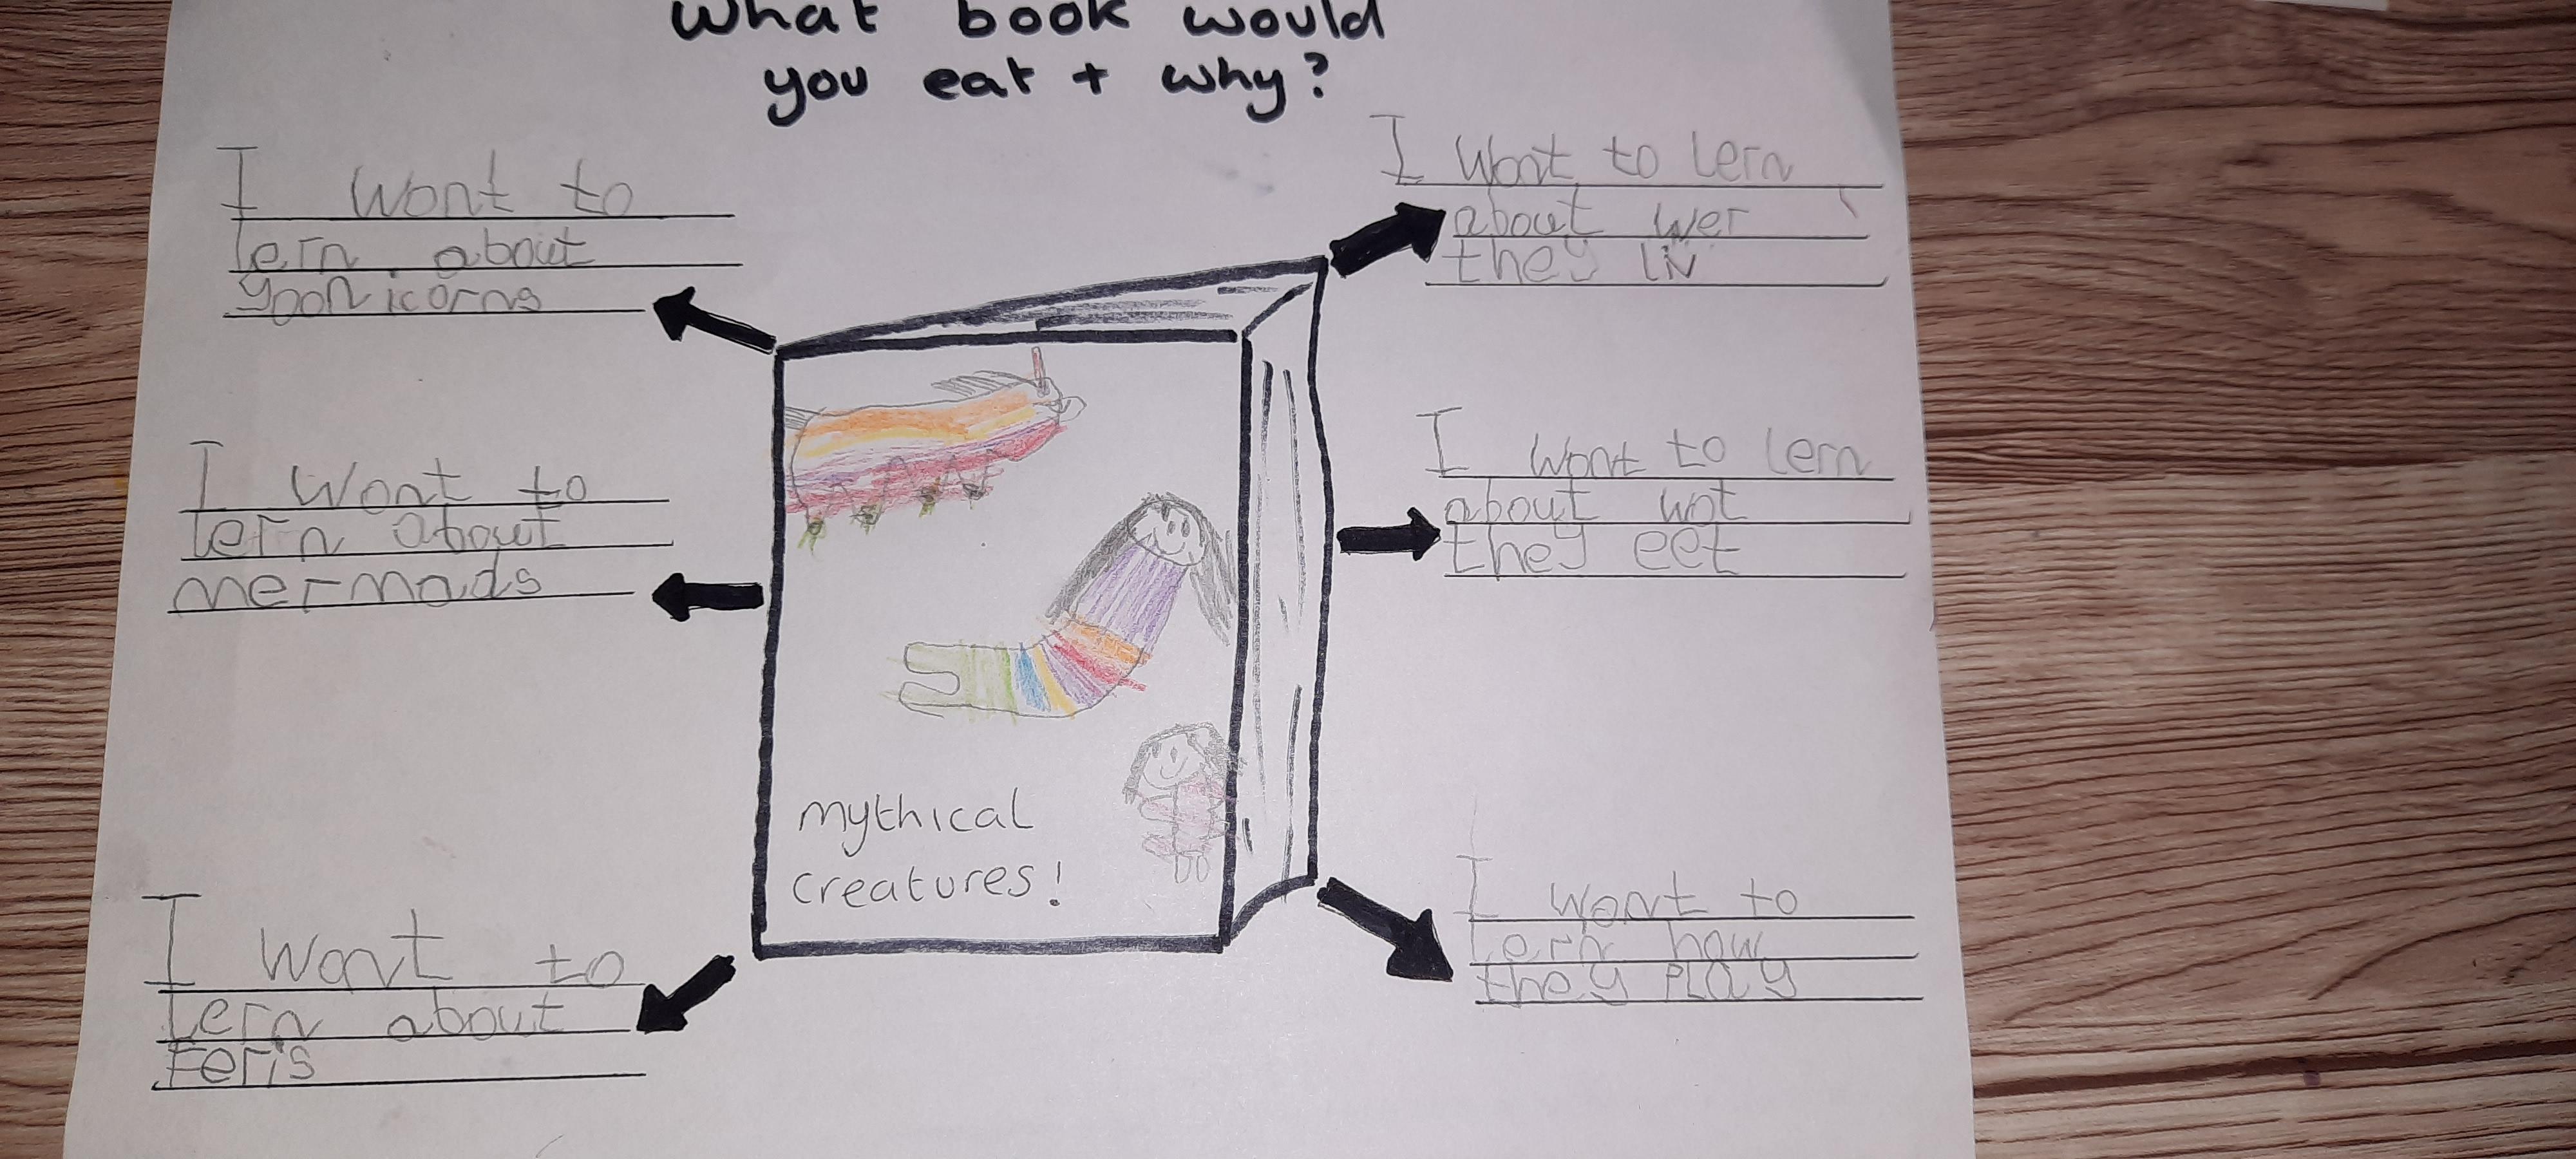 What book would
you eat + why?
I wont to
lern about
yoonicorns
I wont to
lern about
mermads
I wont to
lern about
feris
mythical
creatures!
I wont to lern
about wer
they liv
I wont to lern
about wot
they eet
I wont to
lern how
they play